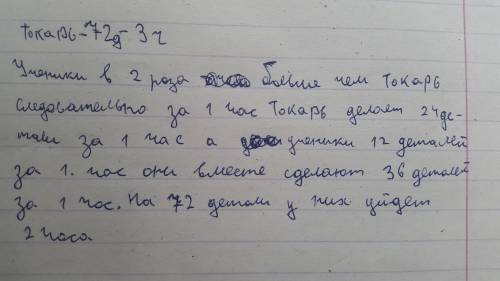 Токарь-72д-3ч
Ученики в 2 роза больше чем токарь
Следовательно за 1 час Токарь делает 24 де-
тали за 1 час а ученики 12 деталей
за 1. час они вместе сделают 36 деталей
за 1 час. На 72 детали у них уйдет
2 часа